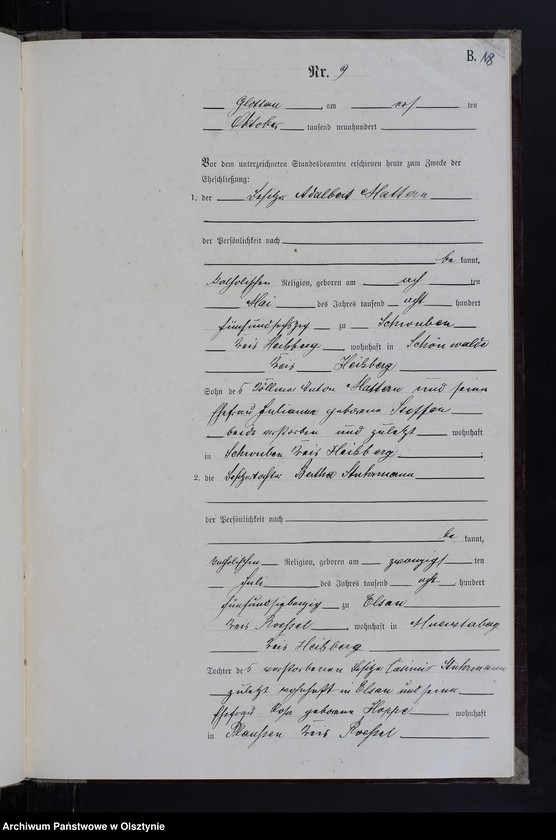 B. 18
Nr. 9
Glottau, am ten
Oktober tausend neunhundert
Vor dem unterzeichneten Standesbeamten erschienen heute zum Zwecke der
Eheschließung:
1. der Besitzer Adalbert Mattern
der Persönlichkeit nach
be kannt,
katholischen Religion, geboren am ach ten
Mai des Jahres tausend acht hundert
fünfundsechszig zu Schwuben
Kreis Heilsberg, wohnhaft in Schönwalde
Kreis Heilsberg
Sohn des Köllmer Anton Mattern und seiner
Ehefrau Julianna geborene Steffen
beide verstorben und zuletzt wohnhaft
in Schwuben Kreis Heilsberg
2. die Besitzertochter Bertha Stuhrmann
der Persönlichkeit nach
be kannt,
katholischen Religion, geboren am zwanzigs ten
Juli des Jahres tausend acht hundert
fünfundsiebenzig zu Elsau
Kreis Roessel, wohnhaft in
Kreis Heilsberg
Tochter des verstorbenen Besitzer Casimir Stuhrmann
zuletzt wohnhaft in Elsau und seiner
Ehefrau Rosa geborene Hoppe wohnhaft
in Plaussen Kreis Roessel
Archiwum Państwowe w Olsztynie